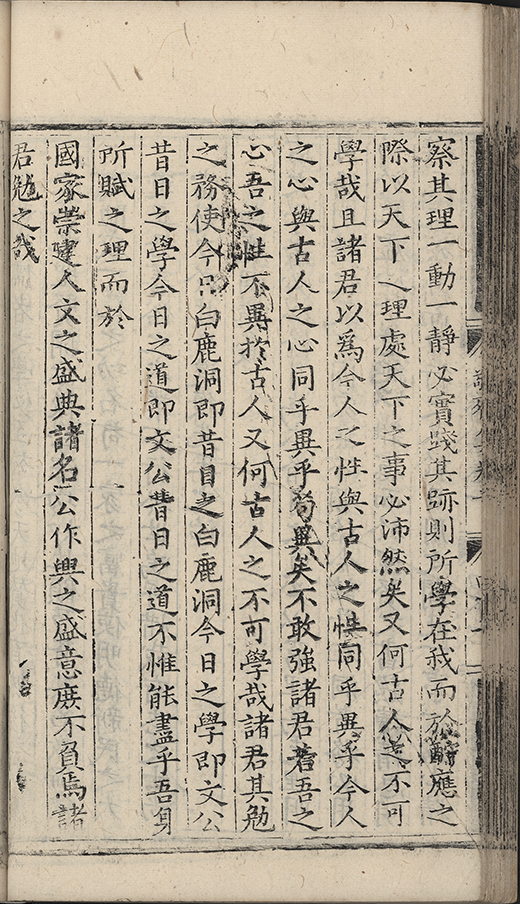 察其理一動一靜必實踐其跡則所學在我而於酬應之
際以天下之理處天下之事必沛然矣又何古人之不可
學哉且諸君以爲今人之性與古人之性同乎異乎今人
之心與古人之心同乎異乎苟異矣不敢強諸君若吾之
心吾之性不異於古人又何古人之不可學哉諸君其勉
之務使今日白鹿洞即昔日之白鹿洞今日之學即文公
昔日之學今日之道即文公昔日之道不惟能盡乎吾身
所賦之理而於
國家崇建人文之盛典諸名公作興之盛意庶不負焉諸
君勉之哉